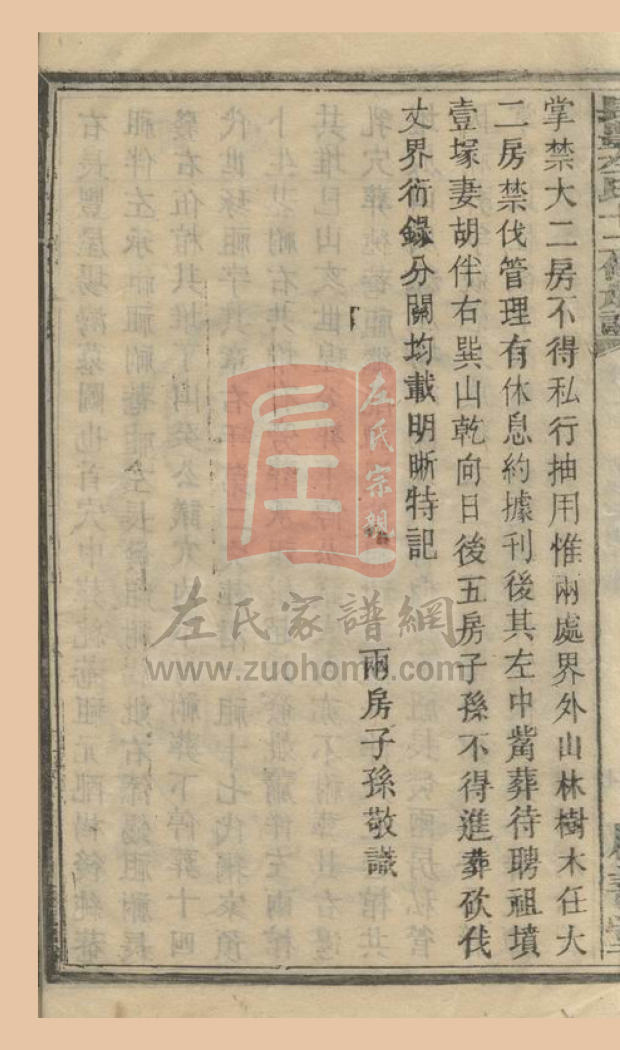 掌禁大二房不得私行抽用惟兩處界外山林樹木任大
二房禁伐管理有休息約據刊後其左中觜葬待聘祖墳
壹塚妻胡伴右巽山乾向日後五房子孫不得進葬砍伐
丈界術錄分關均載明晰特記
兩房子孫敬識
左氏宗親
左氏家譜網
www.zuohome.com